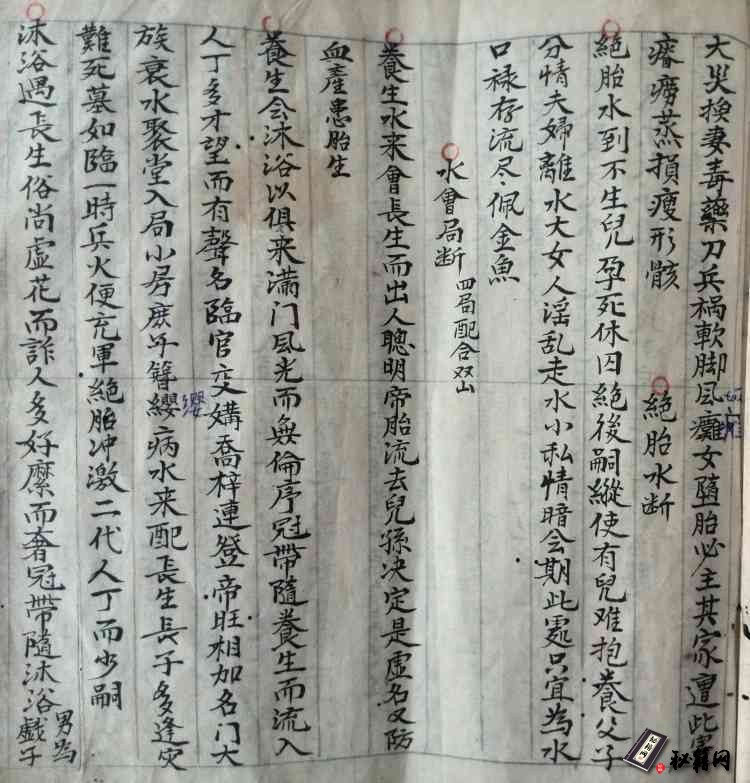 大災換妻毒藥刀兵禍軟脚風癱女墮胎必主其家遭此
瘠癆蒸損瘦形骸
絕胎水断
絕胎水到不生兒孕死休囚絕後嗣縱使有兒难抱養父子
分情夫婦離水大女人淫乱走水小私情暗会期此處只宜為水
口禄存流尽佩金魚
水會局断 四局配合双山
養生水来會長生而出人聰明帝胎流去兒孫决定是虚名又防
血產患胎生
養生会沐浴以俱来满门風光而無倫序冠帶隨養生而流入
人丁多才望而有聲名臨官交媾喬梓連登帝旺相加名门大
族衰水聚堂入局小房庶子簪纓病水来配長生長子多逢灾
纓
難死墓如臨一時兵火便充軍絕胎冲激二代人丁而少嗣
沐浴遇長生俗尚虚花而詐人多好縻而奢冠帶隨沐浴男為戲子
秘籍网